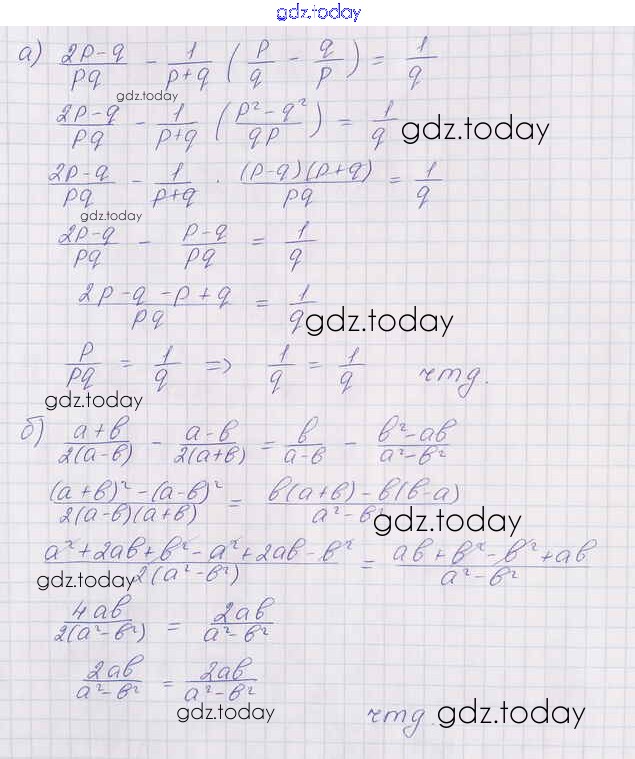 gdz.today
а) (2p-q)/(pq) - 1/(p+q) (p/q - q/p) = 1/q
gdz.today
(2p-q)/(pq) - 1/(p+q) ((p²-q²)/(qp)) = 1/q
gdz.today
(2p-q)/(pq) - 1/(p+q) · ((p-q)(p+q))/(pq) = 1/q
gdz.today
(2p-q)/(pq) - (p-q)/(pq) = 1/q
(2p-q-p+q)/(pq) = 1/q
gdz.today
p/(pq) = 1/q => 1/q = 1/q чтд.
gdz.today
б) (a+в)/(2(a-в)) - (a-в)/(2(a+в)) = в/(a-в) - (в²-aв)/(a²-в²)
((a+в)²-(a-в)²)/(2(a-в)(a+в)) = (в(a+в)-в(в-a))/(a²-в²)
gdz.today
(a²+2aв+в²-a²+2aв-в²)/(2(a²-в²)) = (aв+в²-в²+aв)/(a²-в²)
gdz.today
4aв/(2(a²-в²)) = 2aв/(a²-в²)
2aв/(a²-в²) = 2aв/(a²-в²)
gdz.today
чтд gdz.today